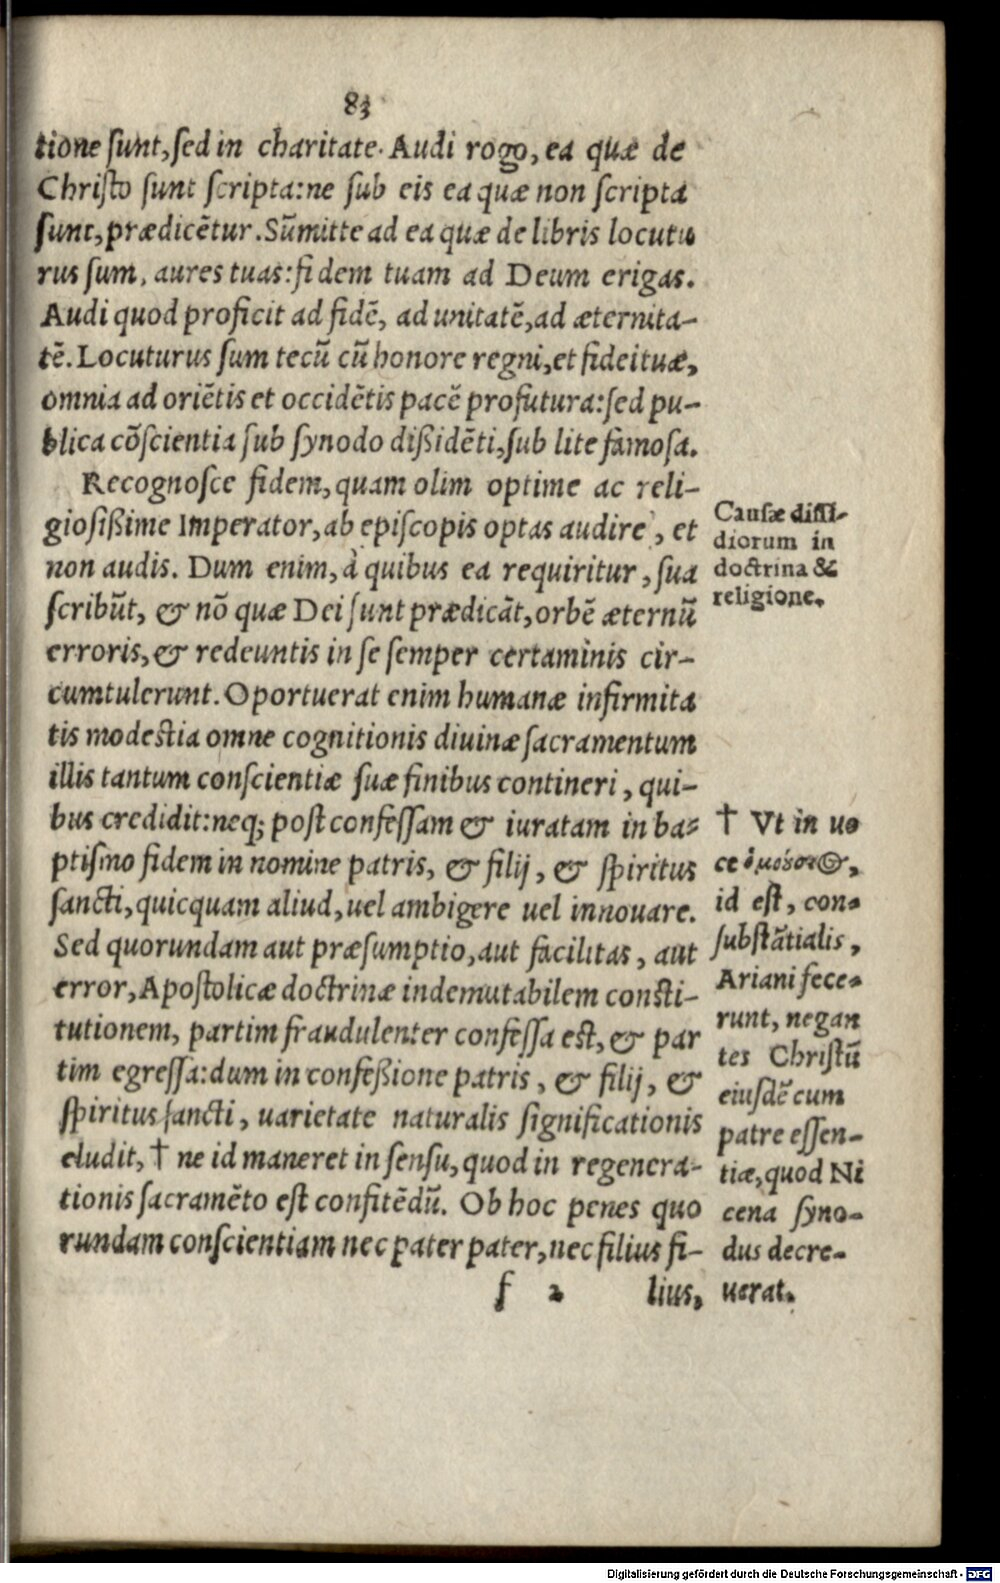 83
tione ſunt, ſed in charitate. Audi rogo, ea quæ de
Chriſto ſunt ſcripta: ne ſub eis ea quæ non ſcripta
ſunt, prædicẽtur. Sũmitte ad ea quæ de libris locutu
rus ſum, aures tuas: fidem tuam ad Deum erigas.
Audi quod proficit ad fidẽ, ad unitatẽ, ad æternita-
tẽ. Locuturus ſum tecũ cũ honore regni, et fidei tuæ,
omnia ad oriẽtis et occidẽtis pacẽ profutura: ſed pu-
blica cõſcientia ſub ſynodo dißidẽti, ſub lite famoſa.
Recognoſce fidem, quam olim optime ac reli-
gioſißime Imperator, ab epiſcopis optas audire, et
non audis. Dum enim, à quibus ea requiritur, ſua
ſcribũt, & nõ quæ Dei ſunt prædicãt, orbẽ æternũ
erroris, & redeuntis in ſe ſemper certaminis cir-
cumtulerunt. Oportuerat enim humanæ infirmita
tis modeſtia omne cognitionis diuinæ ſacramentum
illis tantum conſcientiæ ſuæ finibus contineri, qui-
bus credidit: neq; poſt confeſſam & iuratam in ba-
ptiſmo fidem in nomine patris, & filij, & ſpiritus
ſancti, quicquam aliud, uel ambigere uel innouare.
Sed quorundam aut præſumptio, aut facilitas, aut
error, Apoſtolicæ doctrinæ indemutabilem conſti-
tutionem, partim fraudulenter confeſſa eſt, & par
tim egreſſa: dum in confeßione patris, & filij, &
ſpiritus ſancti, uarietate naturalis ſignificationis
eludit, † ne id maneret in ſenſu, quod in regenera-
tionis ſacramẽto eſt confitẽdũ. Ob hoc penes quo
rundam conſcientiam nec pater pater, nec filius fi-
f 2 lius,
Cauſæ diſſi-
diorum in
doctrina &
religione.
† Vt in uo
ce ὁμοούσι@,
id eſt, con-
ſubſtãtialis,
Ariani fece-
runt, negan
tes Chriſtũ
eiuſdẽ cum
patre eſſen-
tiæ, quod Ni
cena ſyno-
dus decre-
uerat.
Digitalisierung gefördert durch die Deutsche Forschungsgemeinschaft - DFG